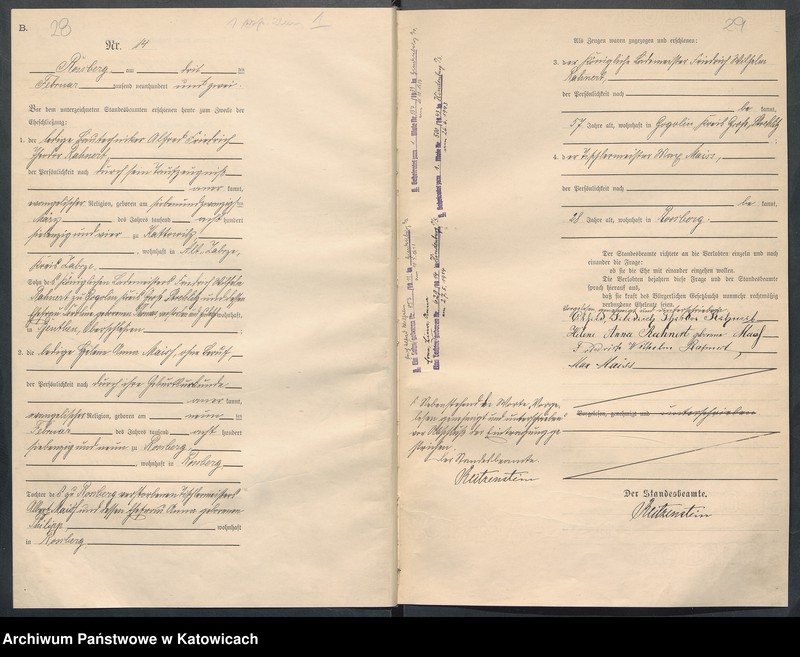 B.
23
Nr. 14
Rosberg am drei ten
Februar tausend neunhundert und zwei
Vor dem unterzeichneten Standesbeamten erschienen heute zum Zwecke der
Eheschließung:
1. der ledige Bautechniker Alfred Friedrich
Theodor Rahnert
der Persönlichkeit nach durch sein Taufzeugniß
aner kannt,
evangelischer Religion, geboren am siebenundzwanzigsten
März des Jahres tausend acht hundert
siebenzig und vier zu Kattowitz
, wohnhaft in Alt-Zabrze,
Kreis Zabrze,
Sohn des Königlichen Lademeisters Friedrich Wilhelm
Rahnert zu Gogolin Kreis Groß Strehlitz und dessen
Ehefrau geborenen wohnhaft
in Beuthen, Oberschlesien ;
2. die ledige Helene Anna Maiß, ohne Beruf
der Persönlichkeit nach durch ihre Geburtsurkunde
aner kannt,
evangelischer Religion, geboren am neun ten
Februar des Jahres tausend acht hundert
siebenzig und neun zu Rosberg
, wohnhaft in Rosberg
Tochter des zu Rosberg verstorbenen Tischlermeisters
Albert Maiß und dessen Ehefrau Anna geborenen
Philipp wohnhaft
in Rosberg.
29
Als Zeugen waren zugezogen und erschienen:
3. der Königliche Lademeister Friedrich Wilhelm
Rahnert,
der Persönlichkeit nach
be kannt,
57 Jahre alt, wohnhaft in Gogolin Kreis Groß Strehlitz
;
4. der Tischlermeister Max Maiss,
der Persönlichkeit nach
be kannt,
28 Jahre alt, wohnhaft in Rosberg.
Der Standesbeamte richtete an die Verlobten einzeln und nach
einander die Frage:
ob sie die Ehe mit einander eingehen wollen.
Die Verlobten bejahten diese Frage und der Standesbeamte
sprach hierauf aus,
daß sie kraft des Bürgerlichen Gesetzbuchs nunmehr rechtmäßig
verbundene Eheleute seien.
Vorgelesen genehmigt und unterschrieben
Alfred Friedrich Theodor Rahnert
Helene Anna Rahnert geborene Maiß
Friedrich Wilhelm Rahnert
Max Maiss
Vorgelesen, genehmigt und unterschrieben
Nebenstehende Worte, Vorge-
lesen genehmigt und unterschrieben
am Abschluß der Eintragung ge-
strichen.
Der Standesbeamte.
Reitzenstein
Der Standesbeamte.
Reitzenstein
Archiwum Państwowe w Katowicach